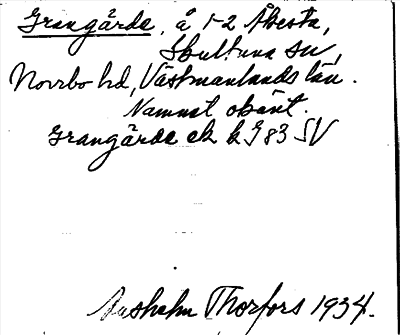 Grangärde, å 1-2 Åbesta,
Skultuna sn,
Norrbo hd, Västmanlands län.
Namnet okänt.
Grangärde ek bl 983 SV
Thorfors 1934.